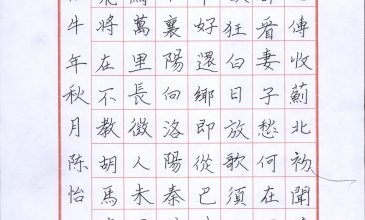 傳收薊北初聞
看妻子愁何在
狂白日放歌須
好還鄉即從巴
襄陽向洛陽秦
萬里長徵人未
飛將在不教胡馬
牛年秋月陈怡